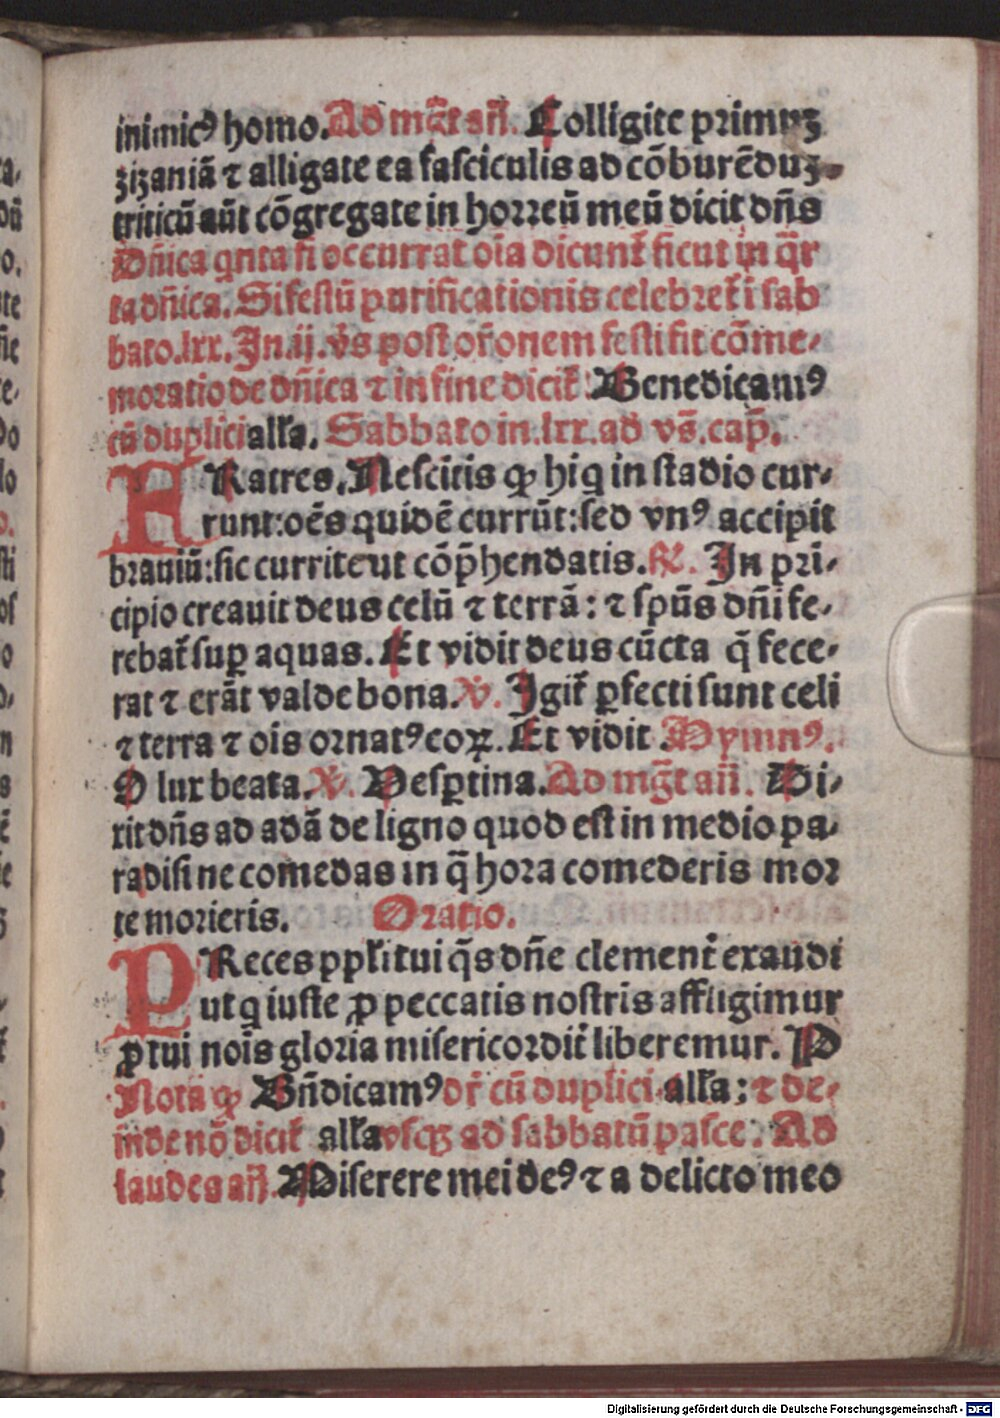 inimicꝰ homo. Ad mg̃t añ. Colligite primuʒ
ʒiʒaniã ⁊ alligate ea fasciculis ad cõburẽduʒ
triticũ aũt cõgregate in horreũ meũ dicit dñs
Dñica qnta si occurrat oĩa dicunt̃ sicut in q̃r
ta dñica. Si festũ purificationis celebret̃ ĩ sab
bato.lxx. In.ij. v̾s post or̃onem festi fit cõme⸗
moratio de dñica ⁊ in fine dicit̃ Benedicamꝰ
cũ duplici alľa. Sabbato in.lxx.ad vs̃.cap̃.
FRatres. Nescitis ꝙ hi q in stadio cur⸗
runt:oẽs quidẽ currũt:sed vnꝰ accipit
brauiũ:sic currite ut cõp̃hendatis. ℟. In pri⸗
cipio creauit deus celũ ⁊ terrã: ⁊ spũs dñi fe⸗
rebat̃ suꝑ aquas. Et vidit deus cũcta q̃ fece⸗
rat ⁊ erãt valde bona. ℣. Igit̃ ꝑfecti sunt celi
⁊ terra ⁊ oĩs ornatꝰ eoꝝ. Et vidit. Hymnꝰ.
O lux beata. ℣. Vesꝑtina. Ad mg̃t añ. Di⸗
xit dñs ad adã de ligno quod est in medio pa⸗
radisi ne comedas in q̃ hora comederis mor
te morieris. Oratio.
PReces ppľi tui q̃s dñe clement̃ exaudi
ut q iuste ꝓ peccatis nostris affligimur
ꝓ tui noĩs gloria misericordit̃ liberemur. P
Nota ꝙ Bñdicamꝰ dr̃ cũ duplici alľa: ⁊ de⸗
inde nõ dicit̃ alľa vsqꝫ ad sabbatũ pasce. Ad
laudes añ. Miserere mei deꝰ ⁊ a delicto meo
Digitalisierung gefördert durch die Deutsche Forschungsgemeinschaft - DFG